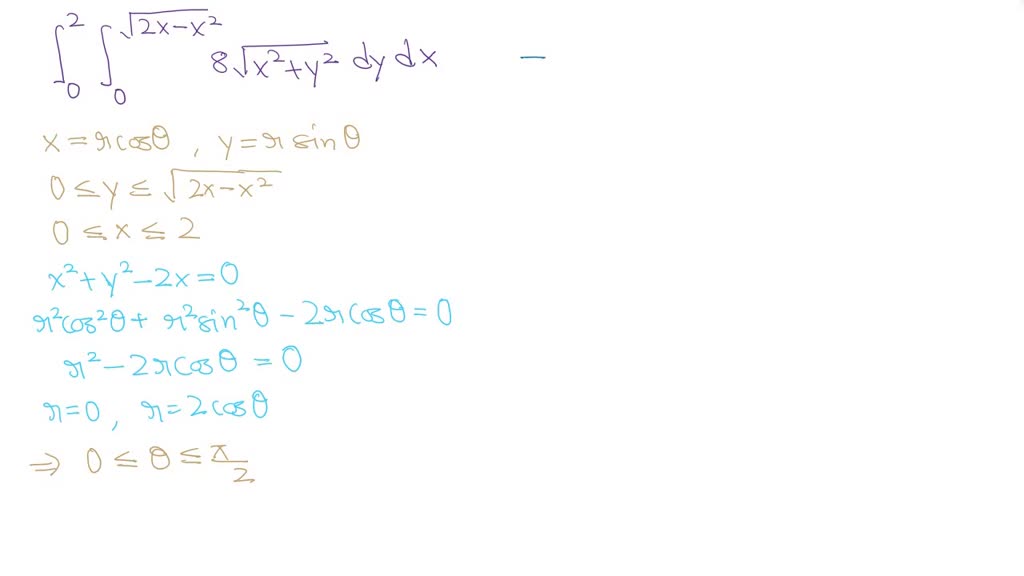 ∫₀² ∫₀^√(2x−x²) 8√(x²+y²) dy dx —
x = r cosθ , y = r sinθ
0 ≤ y ≤ √(2x−x²)
0 ≤ x ≤ 2
x²+y²−2x=0
r²cos²θ + r²sin²θ − 2r cosθ = 0
r² − 2r cosθ = 0
r=0, r=2cosθ
⇒ 0 ≤ θ ≤ π/2